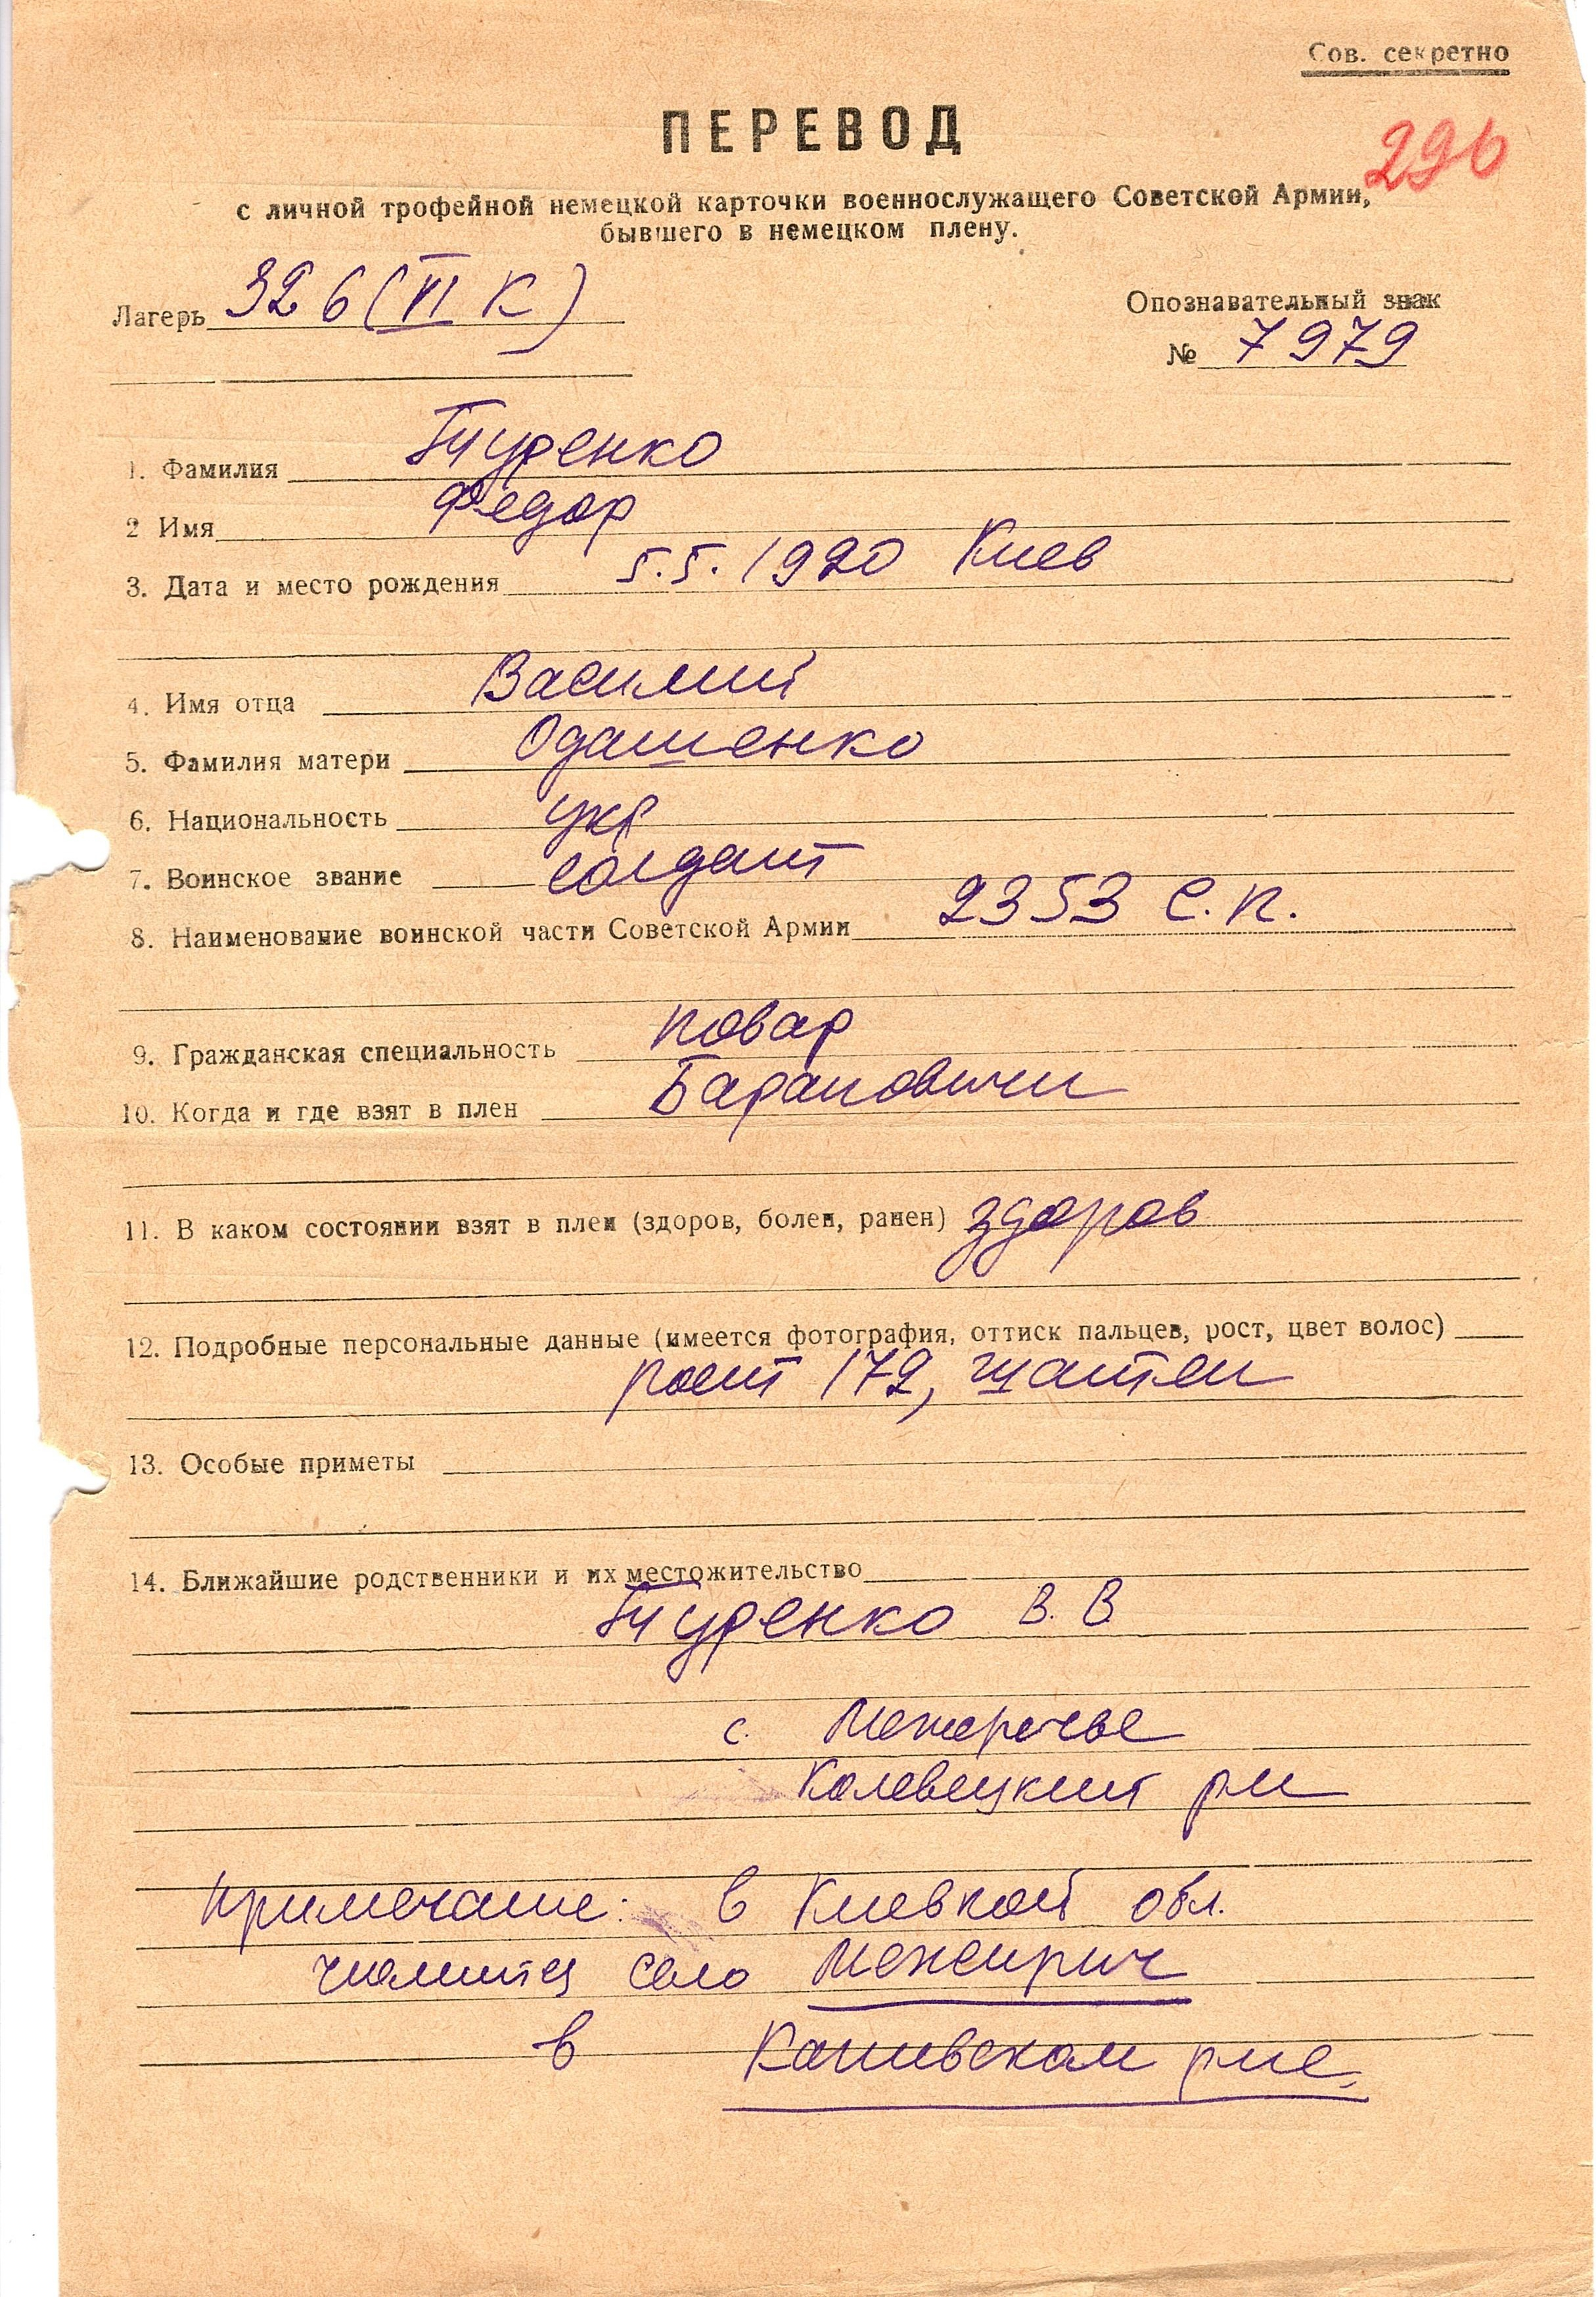 Сов. секретно
ПЕРЕВОД
296
с личной трофейной немецкой карточки военнослужащего Советской Армии,
бывшего в немецком плену.
Лагерь 326 (VI К)
Опознавательный знак
№ 7979
1. Фамилия Туренко
2 Имя Федор
3. Дата и место рождения 5.5.1920 Киев
4. Имя отца Василий
5. Фамилия матери Одашенко
6. Национальность укр
7. Воинское звание солдат
8. Наименование воинской части Советской Армии 2353 с.п.
9. Гражданская специальность повар
10. Когда и где взят в плен Барановичи
11. В каком состоянии взят в плен (здоров, болен, ранен) здоров
12. Подробные персональные данные (имеется фотография, оттиск пальцев, рост, цвет волос)
рост 172, шатен
13. Особые приметы
14. Ближайшие родственники и их местожительство
Туренко В. В.
с. Межеречье
рн
Примечание: в Киевкой обл.
числится село Межирич
в Каневском рне.